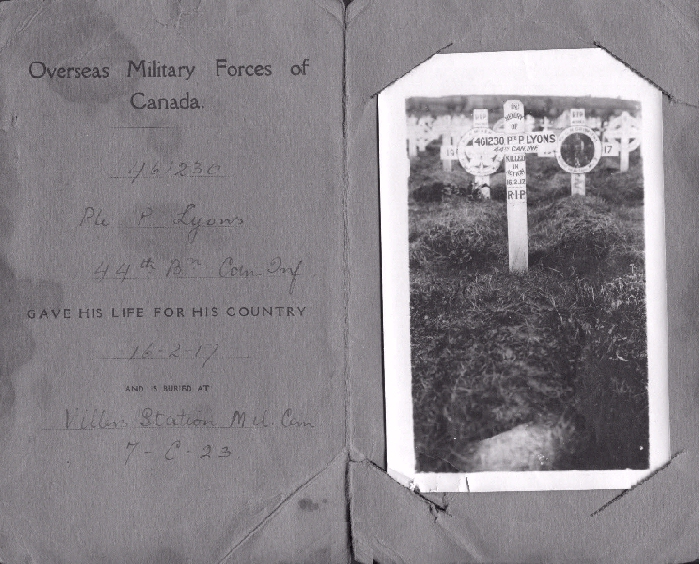 Overseas Military Forces of
Canada.
Pte P Lyons
44th Bn Can Inf
GAVE HIS LIFE FOR HIS COUNTRY
16-2-17
AND IS BURIED AT
Station Mil. Cem
7-C-23
IN
MEMORY
OF
401230 PTE P LYONS
44TH CAN. INF
KILLED
IN
ACTION
16.2.17
R.I.P
17